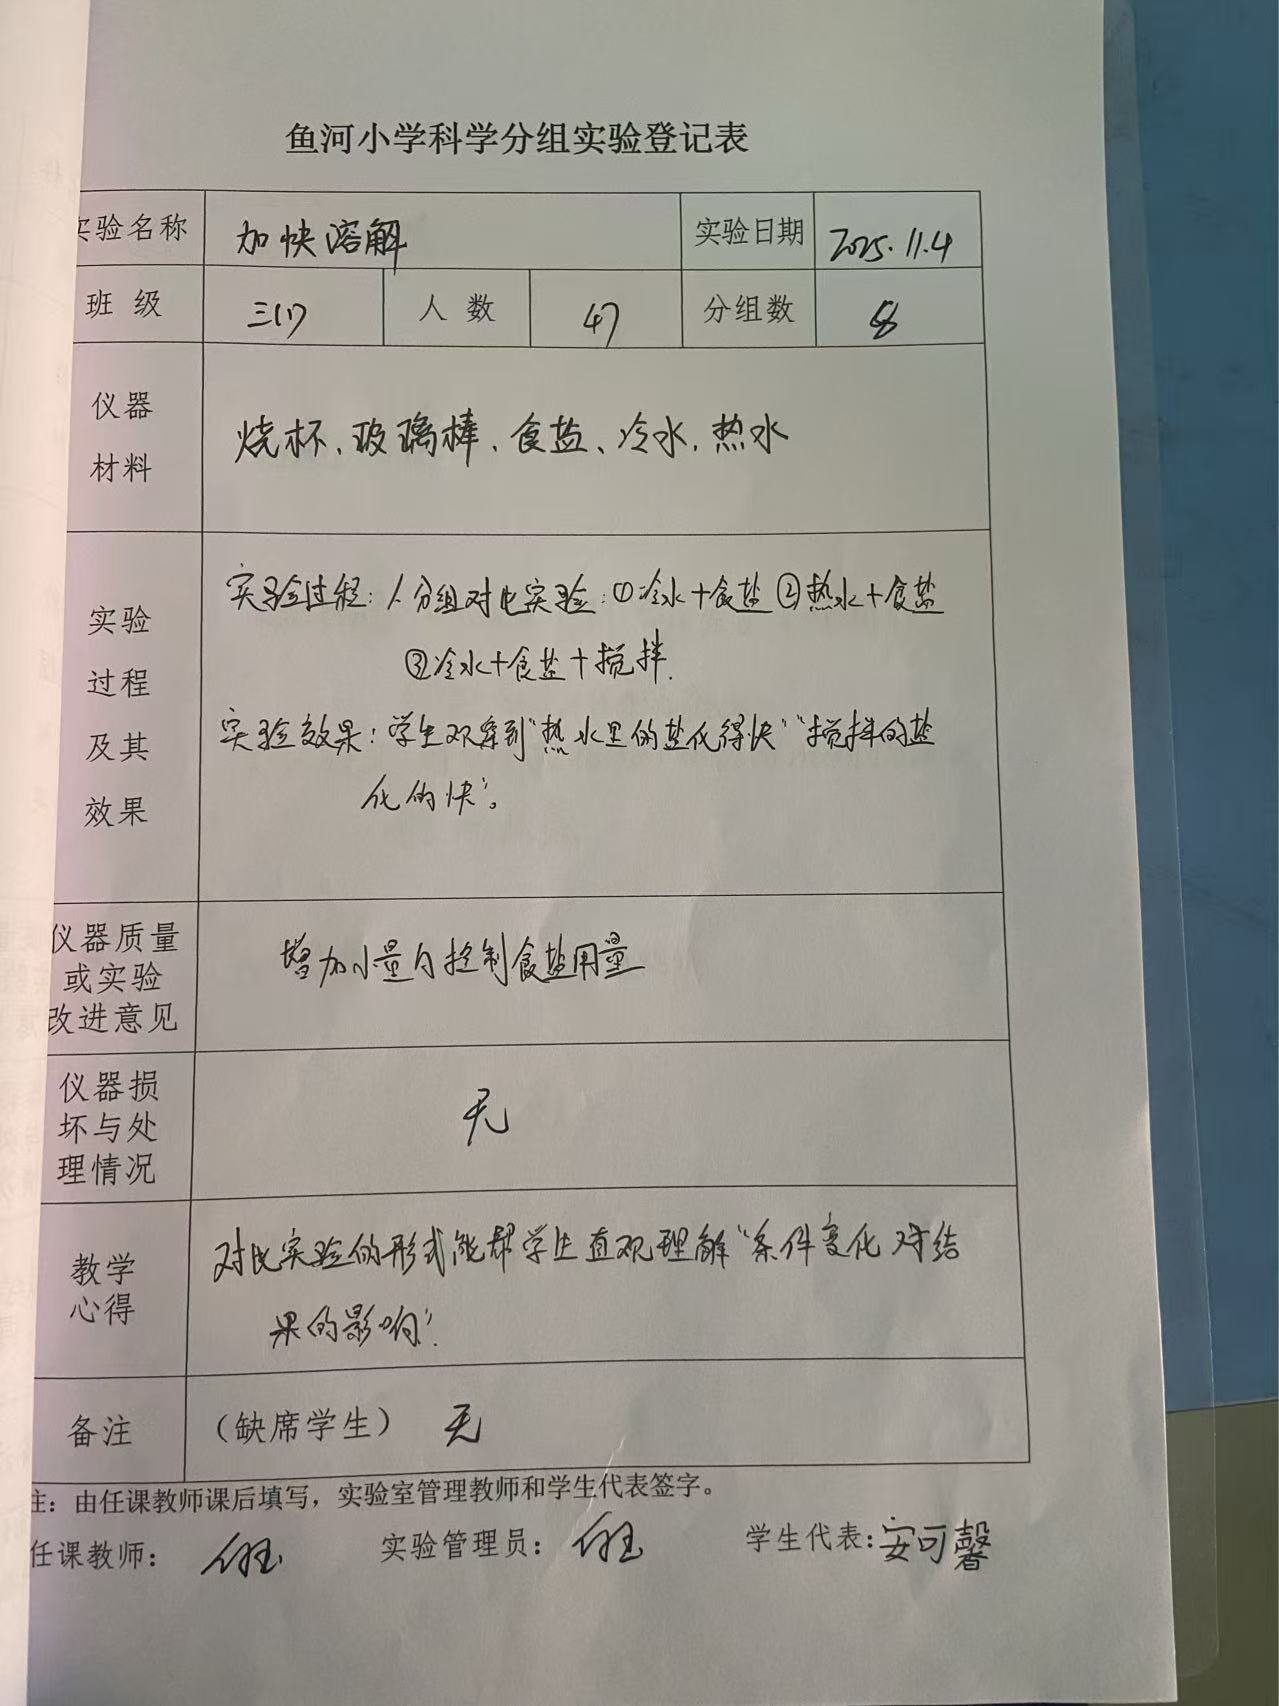 鱼河小学科学分组实验登记表
实验名称 加快溶解 实验日期 2025.11.4
班 级 三(1) 人 数 47 分组数 8
仪器
材料
烧杯、玻璃棒、食盐、冷水、热水
实验
过程
及其
效果
实验过程：1.分组对比实验：①冷水+食盐 ②热水+食盐
③冷水+食盐+搅拌.
实验效果：学生观察到“热水里的盐化得快”“搅拌的盐
化的快”。
仪器质量
或实验
改进意见
增加小量勺控制食盐用量
仪器损
坏与处
理情况
无
教学
心得
对比实验的形式能帮学生直观理解“条件变化对结
果的影响”.
备注 （缺席学生） 无
注：由任课教师课后填写，实验室管理教师和学生代表签字。
任课教师： 实验管理员： 学生代表：安可馨